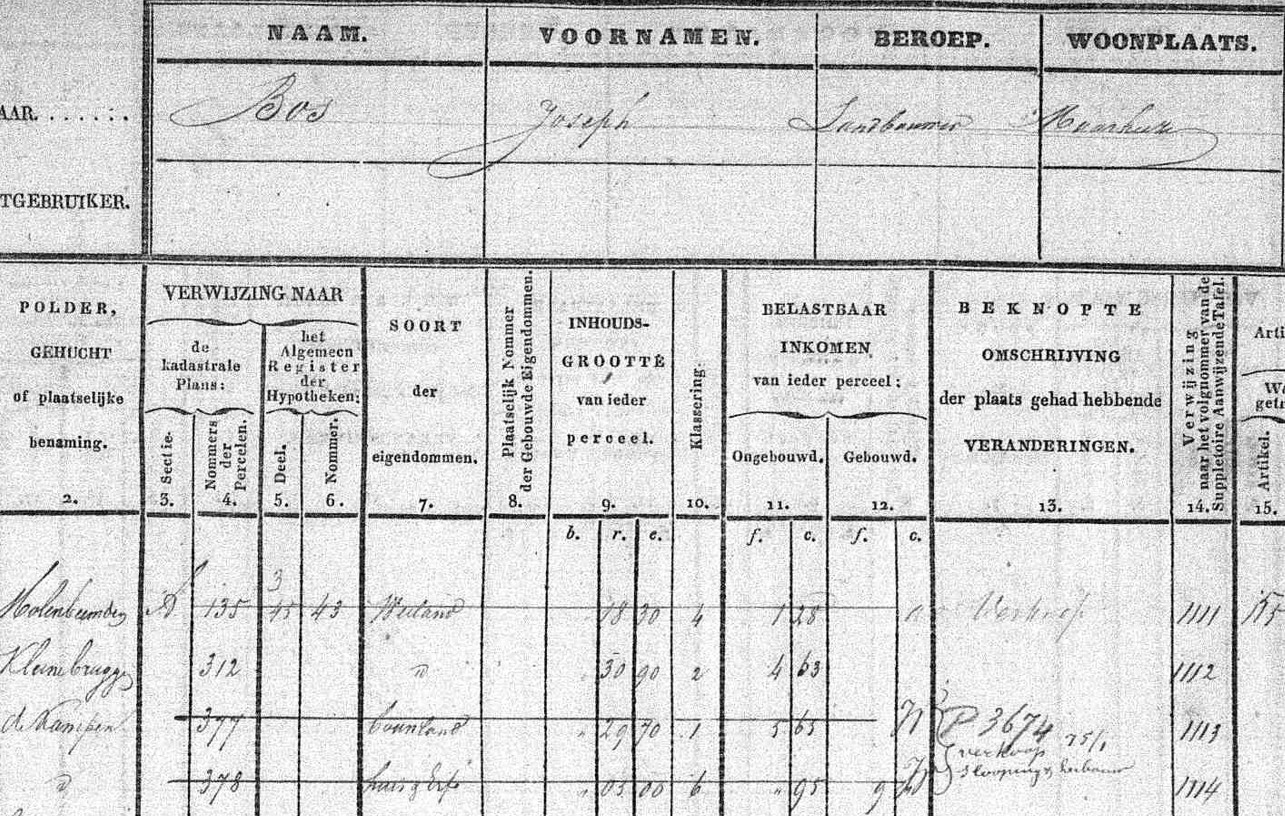 NAAM. VOORNAMEN. BEROEP. WOONPLAATS.
AAR. . . . . . . Bos Joseph Landbouwer Maarheeze
TGEBRUIKER.
POLDER,
GEHUCHT
of plaatselijke
benaming.
2.
VERWIJZING NAAR
de
kadastrale
Plans:
Sectie.
3.
Nommers
der
Percelen.
4.
het
Algemeen
Register
der
Hypotheken:
Deel.
5.
Nommer.
6.
SOORT
der
eigendommen.
7.
Plaatselijk Nommer
der Gebouwde Eigendommen.
8.
INHOUDS-
GROOTTE
van ieder
perceel.
9.
Klassering.
10.
BELASTBAAR
INKOMEN
van ieder perceel;
Ongebouwd.
11.
Gebouwd.
12.
BEKNOPTE
OMSCHRIJVING
der plaats gehad hebbende
VERANDERINGEN.
13.
Verwijzing
naar het volgnommer van de
Suppletoire Aanwijzende Tafel.
14.
Arti
Artikel.
15.
b. r. e. f. c. f. c.
3
Molenbeemden A 135 45 43 Weiland 18 30 4 1 28 Verkoop 1111
Kleinebrugge 312 " " 30 90 2 4 63 1112
de Kampen 377 bouwland " 29 70 1 5 65 P 3674 75/1 1113
verkoop
slooping & herbouw
" 378 huis & Erf " 05 00 6 " 95 9 1114